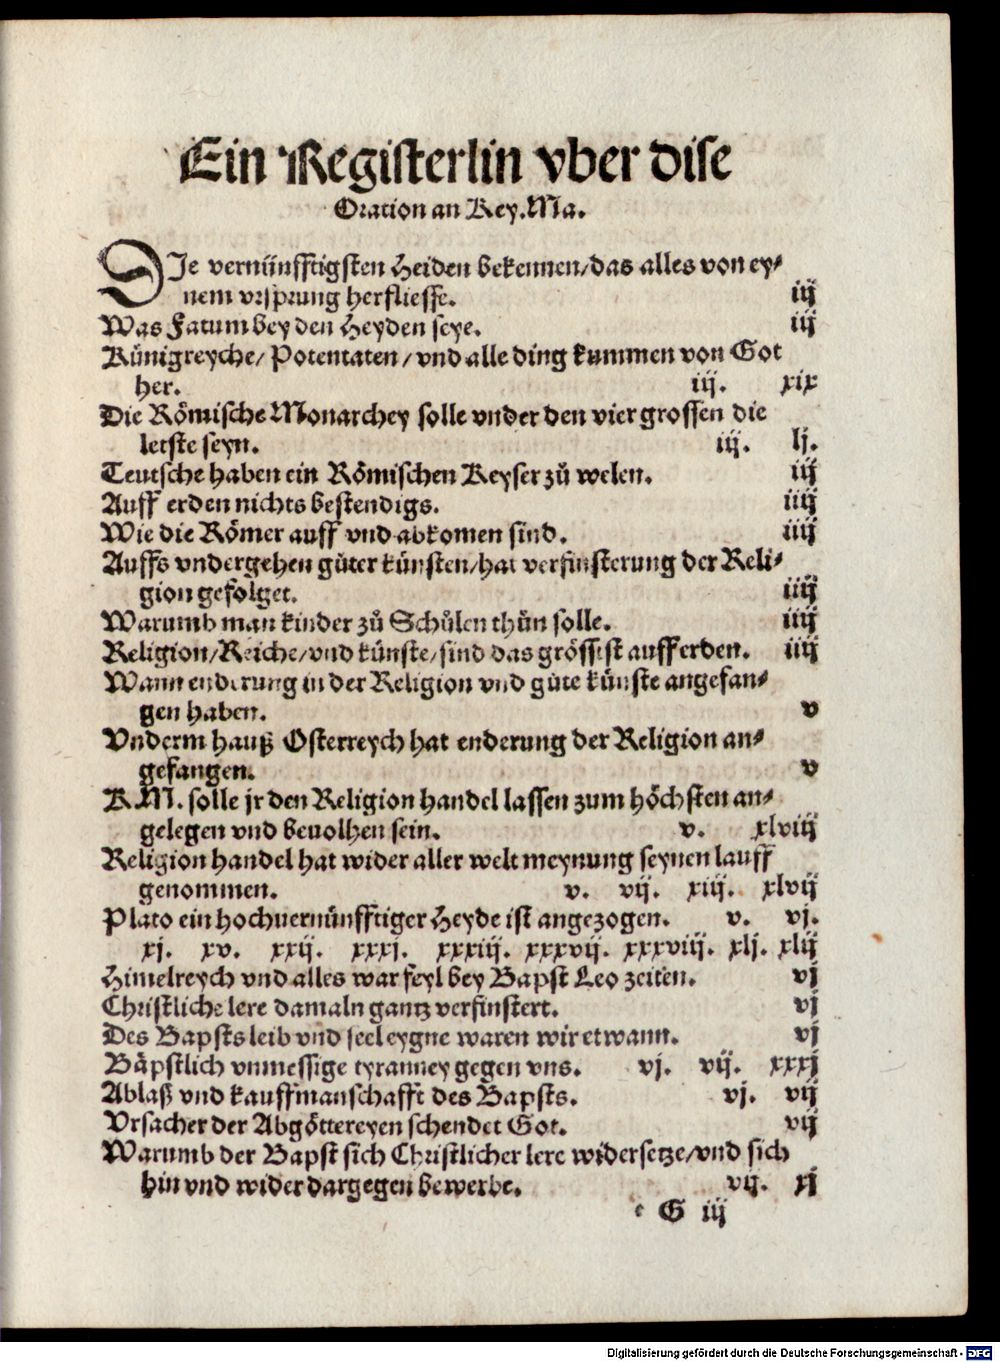 Ein Registerlin vber dise
Oration an Key.Ma.
DJe vernünfftigsten Heiden bekennen/das alles von ey⸗
nem vrsprung herfliesse. iij
Was Fatum bey den Heyden seye. iij
Künigreyche/ Potentaten/ vnd alle ding kummen von Got
her. iij. xix
Die Römische Monarchey solle vnder den vier grossen die
letste seyn. iij. lj.
Teutsche haben ein Römischen Keyser zů welen. iij
Auff erden nichts bestendigs. iiij
Wie die Römer auff vnd abkomen sind. iiij
Auffs vndergehen gůter künsten/hat verfinsterung der Reli⸗
gion gefolget. iiij
Warumb man kinder zů Schůlen thůn solle. iiij
Religion/Reiche/vnd künste/sind das grössest auff erden. iiij
Wann enderung in der Religion vnd gůte künste angefan⸗
gen haben. v
Vnderm hauß Osterreych hat enderung der Religion an⸗
gefangen. v
K.M. solle jr den Religion handel lassen zum höchsten an⸗
gelegen vnd beuolhen sein. v. xlviij
Religion handel hat wider aller welt meynung seynen lauff
genommen. v. vij. xiij. xlvij
Plato ein hochuernünfftiger Heyde ist angezogen. v. vj.
xj. xv. xxij. xxxj. xxxiij. xxxvij. xxxviij. xlj. xlij
Himelreych vnd alles war feyl bey Bapst Leo zeiten. vj
Christliche lere damaln gantz verfinstert. vj
Des Bapsts leib vnd seel eygne waren wir etwann. vj
Bäpstlich vnmessige tyranney gegen vns. vj. vij. xxxj
Ablaß vnd kauffmanschafft des Bapsts. vj. vij
Vrsacher der Abgöttereyen schendet Got. vij
Warumb der Bapst sich Christlicher lere widersetze/vnd sich
hin vnd wider dargegen bewerbe. vij. xj
e G iij
Digitalisierung gefördert durch die Deutsche Forschungsgemeinschaft - DFG